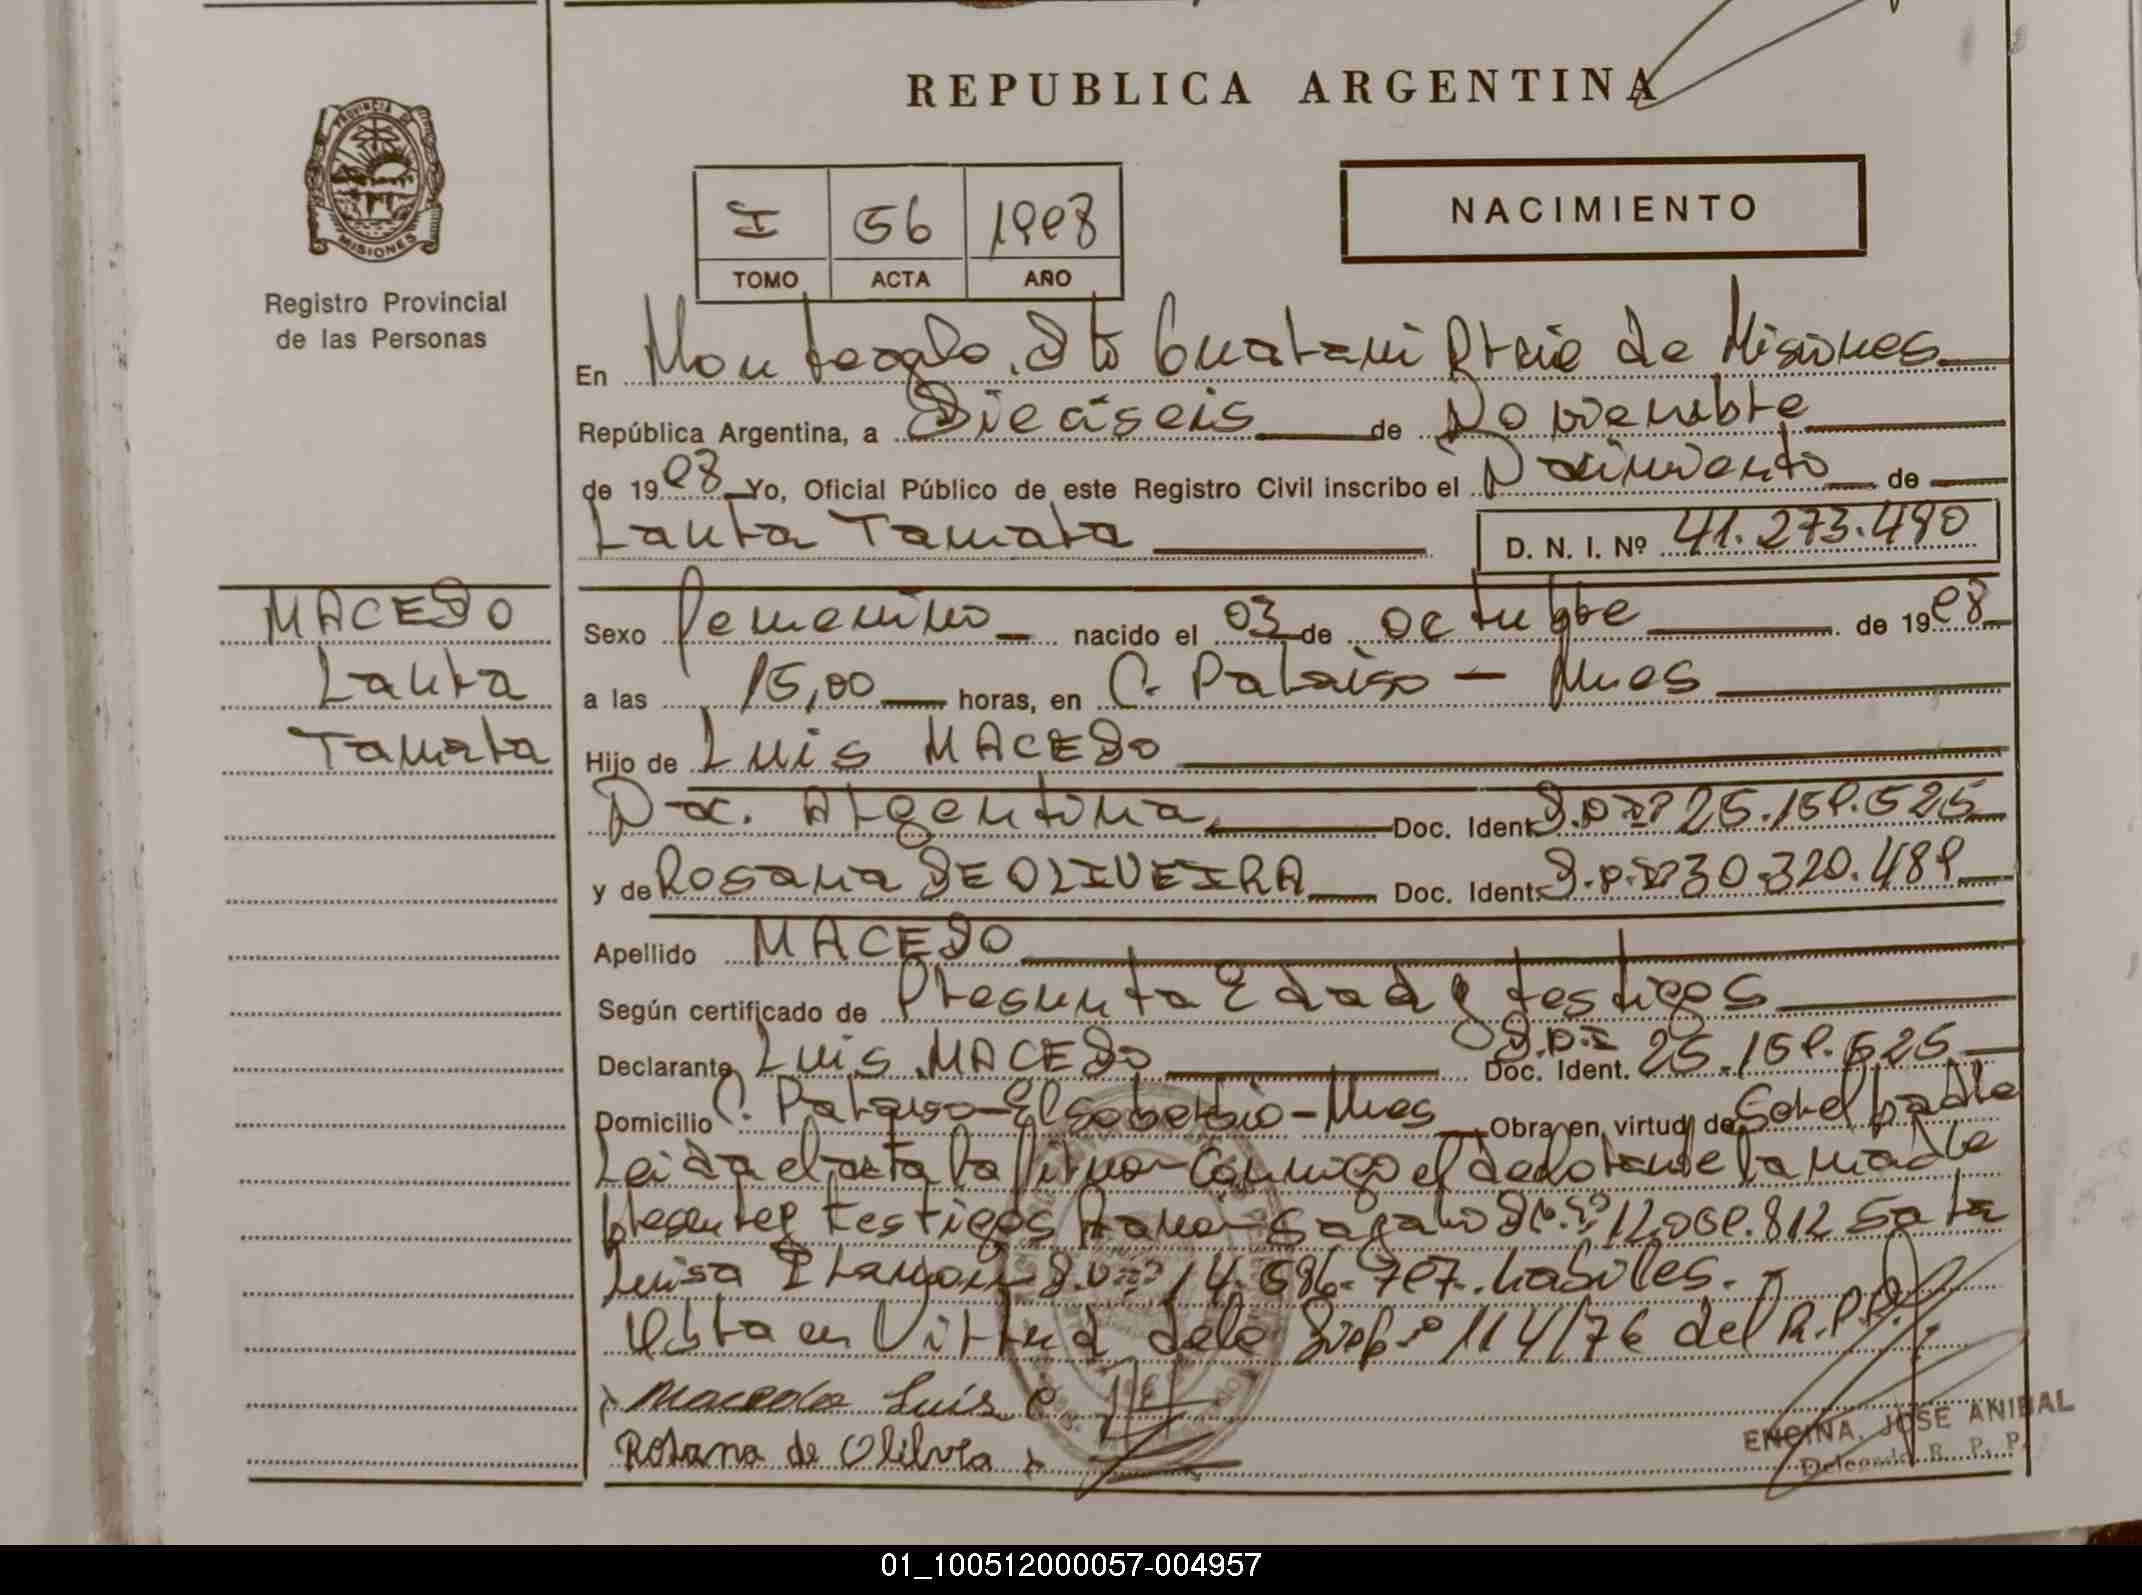 REPUBLICA ARGENTINA
PROVINCIA DE
MISIONES
Registro Provincial
de las Personas
I 56 1998
TOMO ACTA AÑO
NACIMIENTO
En Monteagudo, Dto Guarani Pcia de Misiones
República Argentina, a Dieciseis de Noviembre
de 1998 Yo, Oficial Público de este Registro Civil inscribo el Nacimiento de
Laura Tamara D. N. I. Nº 41.273.490
MACEDO
Laura
Tamara
Sexo Femenino nacido el 03 de Octubre de 1998
a las 15,00 horas, en C. Paraiso - Mnes
Hijo de Luis MACEDO
Nac. Argentina Doc. Ident. 25.159.525
y de Rosana DE OLIVEIRA Doc. Ident. 30.320.489
Apellido MACEDO
Según certificado de Presunta Edad y testigos
Declarante Luis MACEDO Doc. Ident. D.N.I 25.159.525
Domicilio C. Paraiso - El soberbio - Mnes Obra en virtud de Ser el padre
Leida el acta la firman conmigo el la madre
testigos 12.069.812 Sara
Luisa 14.696.707 habiles.
Obra en Virtud de la Disp. nº 114/76 del R.P.P.
Macedo Luis C
Rosana de Olilvra
ENCINA, JOSE ANIBAL
Delegado R. P. P.
01_100512000057-004957